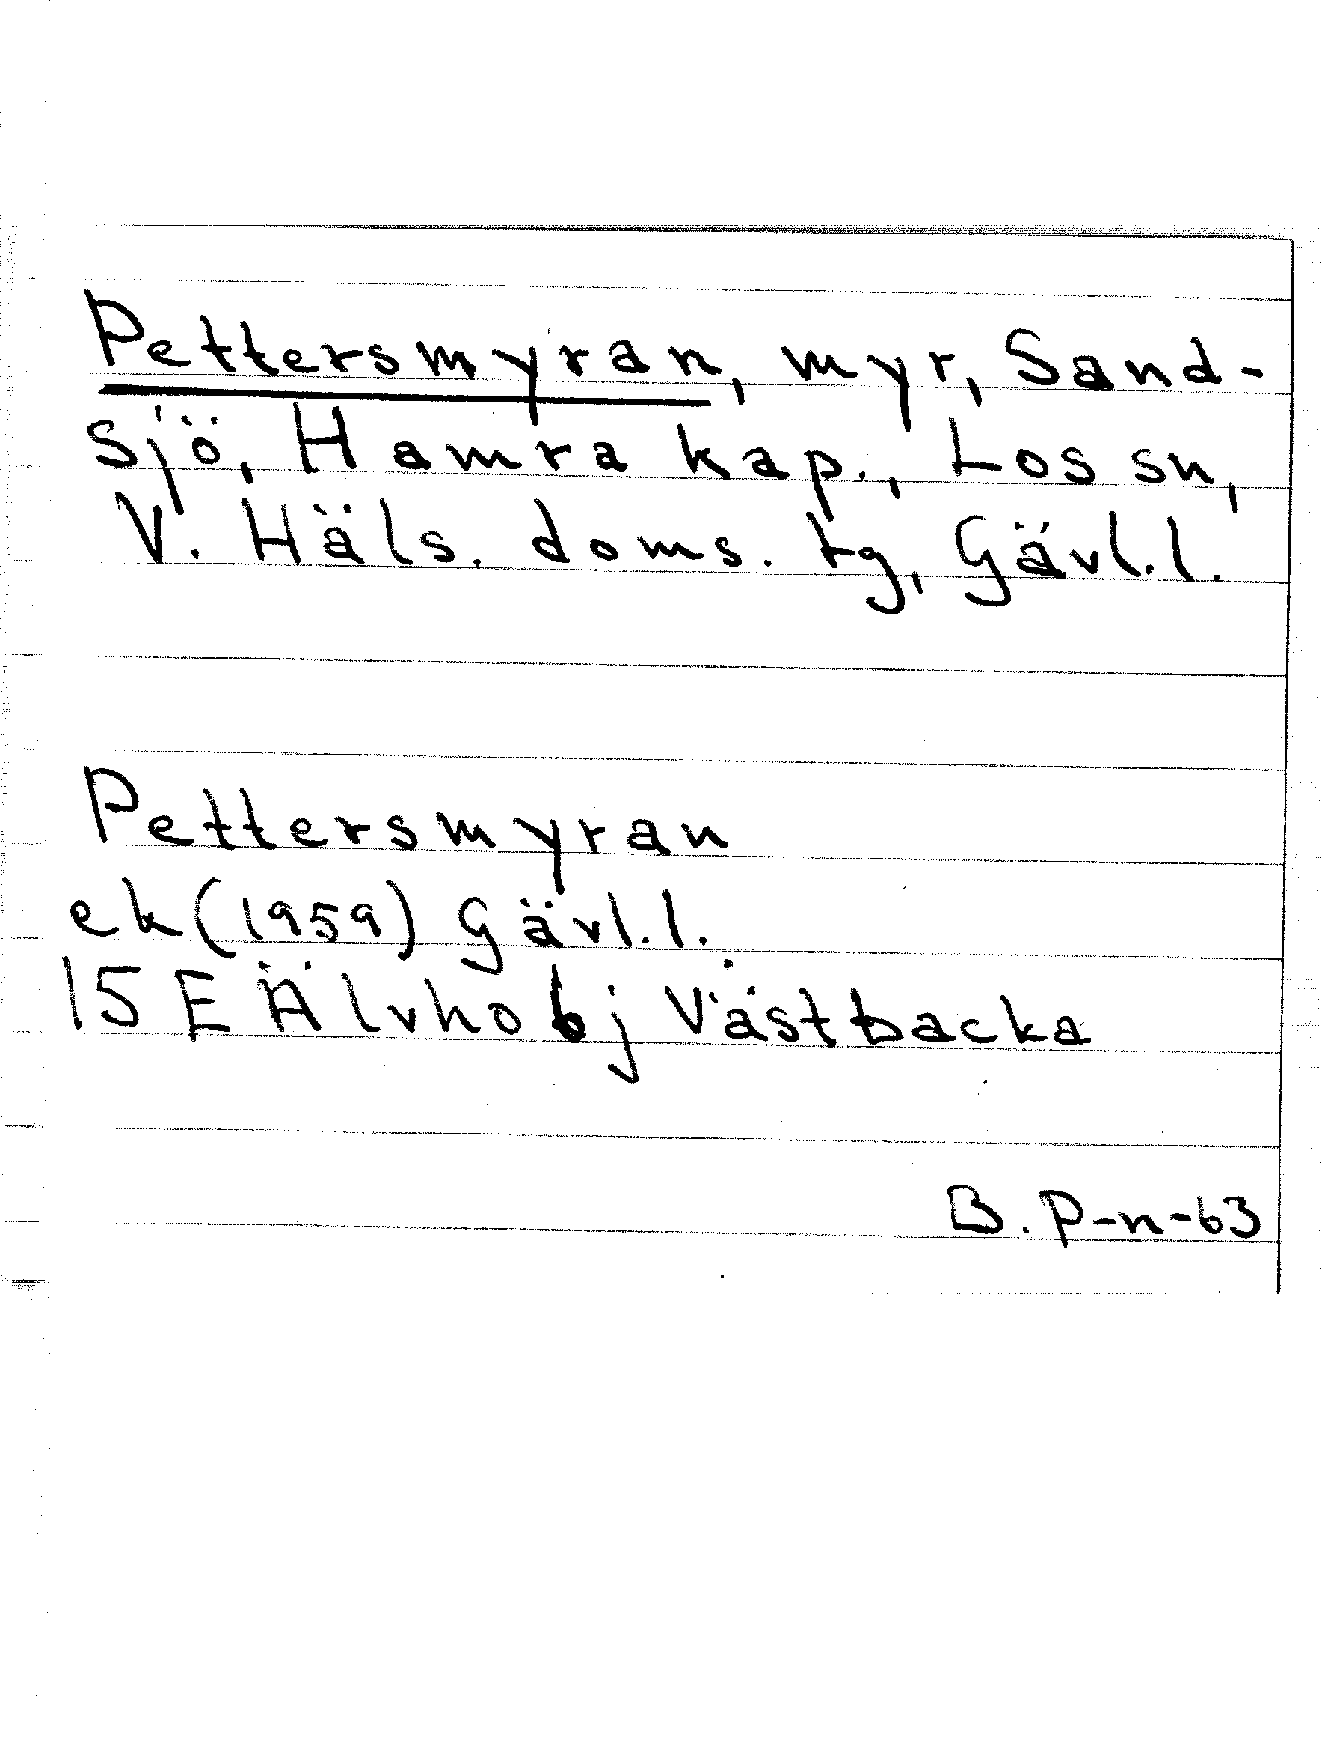 Pettersmyran, myr, Sand-
sjö, Hamra kap., Los sn,
V. Häls. doms. tg, Gävl.l.
Pettersmyran
ek (1959) Gävl.l.
15 E Älvho 6j Västbacka
B. P-n-63